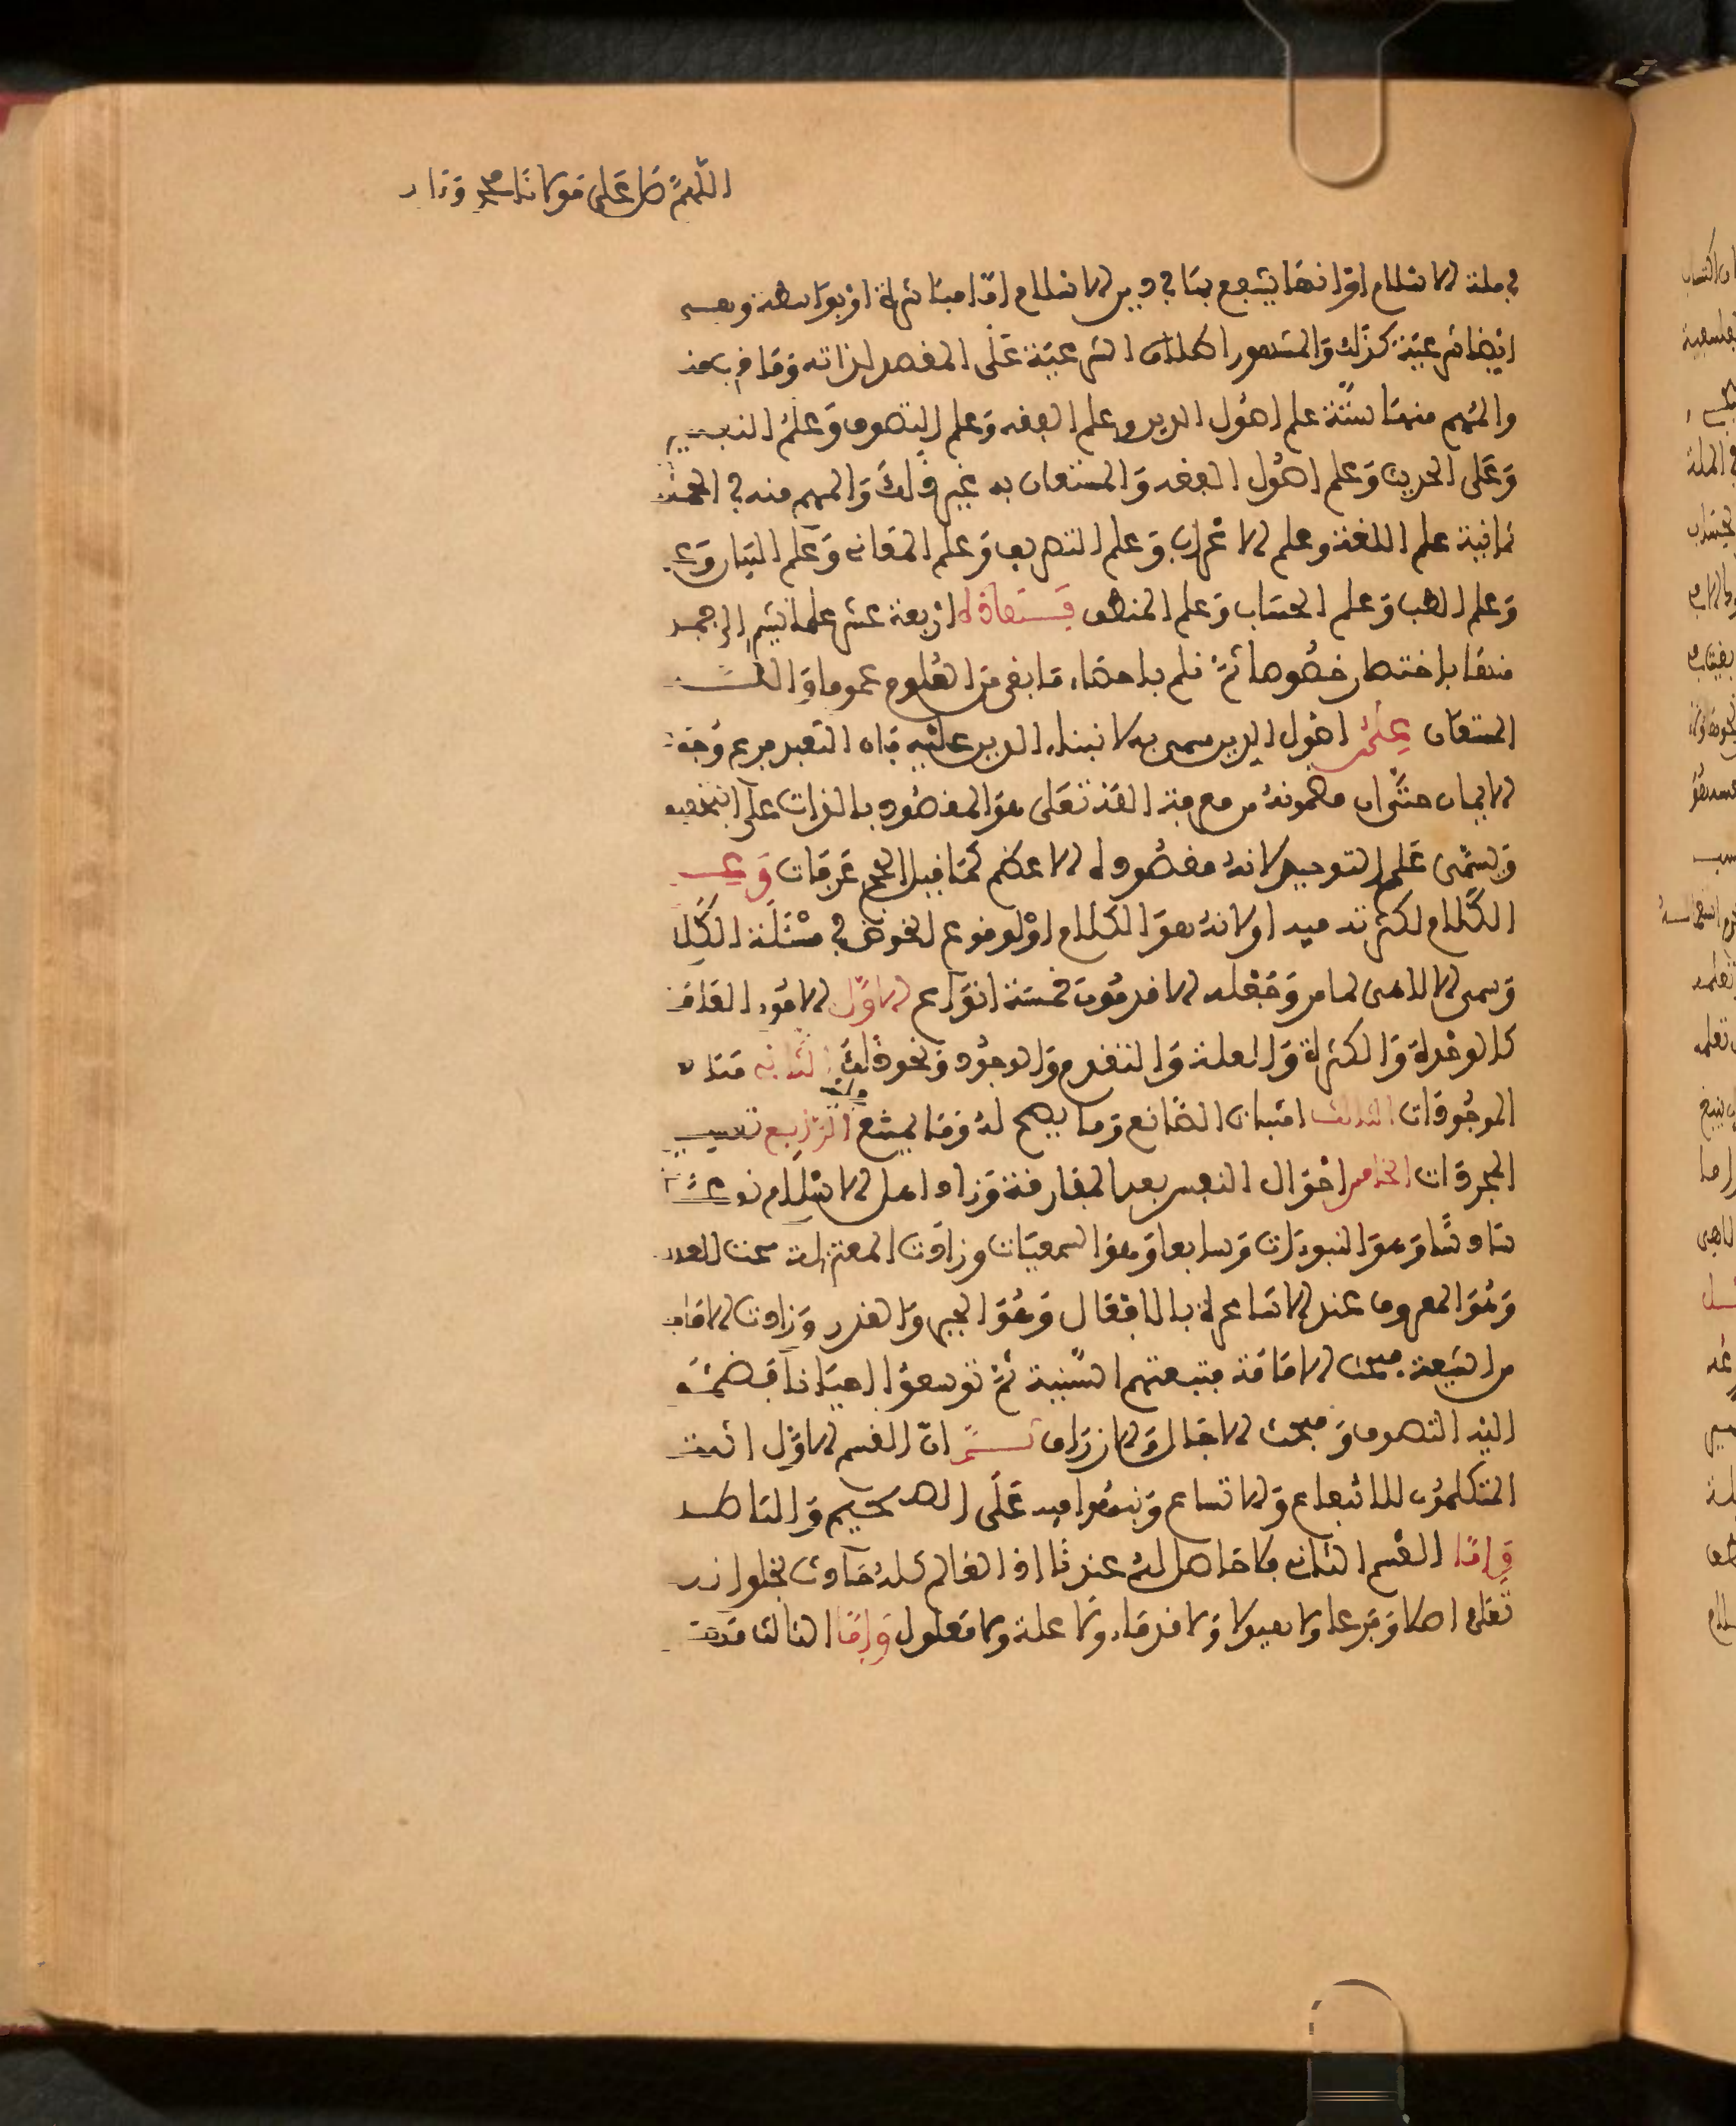 اللهم صل على مولانا محمد وءا
في ملة الاسلام او انها ينتفع بها في دين الاسلام اما مباشرة او بواسطة وهي
ايضا شرعية كذلك والمشهور اطلاق الشرعية على المقصد لذاته وما قرب منه
والمهم منها ستة علم اصول الدين وعلم الفقه وعلم التصوف وعلم التفسير
وعلم الحديث وعلم اصول الفقه والمستعان به غير ذلك والمهم منه في الجملة
ثمانية علم اللغة وعلم الاعراب وعلم التصريف وعلم المعاني وعلم البيان وعلم
وعلم الطب وعلم الحساب وعلم المنطق فهذه اربعة عشر علما نشير الى جمل
منها باختصار خصوصا ثم نلم باحصاء ما بقي من العلوم عموما والله
المستعان علم اصول الدين سمي به لانبناء الدين عليه فان التعبد فرع وجود
الايمان حتى ان مضمونه من معرفة الله تعلى هو المقصود بالذات على التحقيق
ويسمى علم التوحيد لانه مقصوده الاعظم كما قيل الحج عرفات وعلم
الكلام لكثرته فيه او لانه هو الكلام او لوقوع الخوض في مسئلة الكلام
وسمي الالاهي لما مر وجعله الاقدمون خمسة انواع الاول الامور العامة
كالوحدة والكثرة والعلة والتقدم والوجود ونحو ذلك الثاني مبادي
الموجودات الثالث اثبات الصانع وما يصح له وما يمتنع الرابع تقسيم
المجردات الخامس احوال النفس بعد المفارقة وزاد اهل الاسلام نوعا
سادسا وهو النبوءات وسابعا وهو السمعيات وزادت المعتزلة مبحث العدل
وهو المعروف عند الاشاعرة بالافعال وهو الجبر والقدر وزادت الامامية
من الشيعة مبحث الامامة فتبعتهم السنية ثم توسعوا احيانا فضموا
اليه التصوف ومبحث الاجال والارزاق ثم ان القسم الاول اثبته
المتكلمون للانتفاع والاتساع ونبهوا فيه على الصحيح والباطل
واما القسم الثاني فلا حاصل له عندنا اذ العالم كله حادث بخلق الله
تعلى اصلا وفرعا ولا هيولا ولا قدماء ولا علة ولا معلول واما الثالث فهو